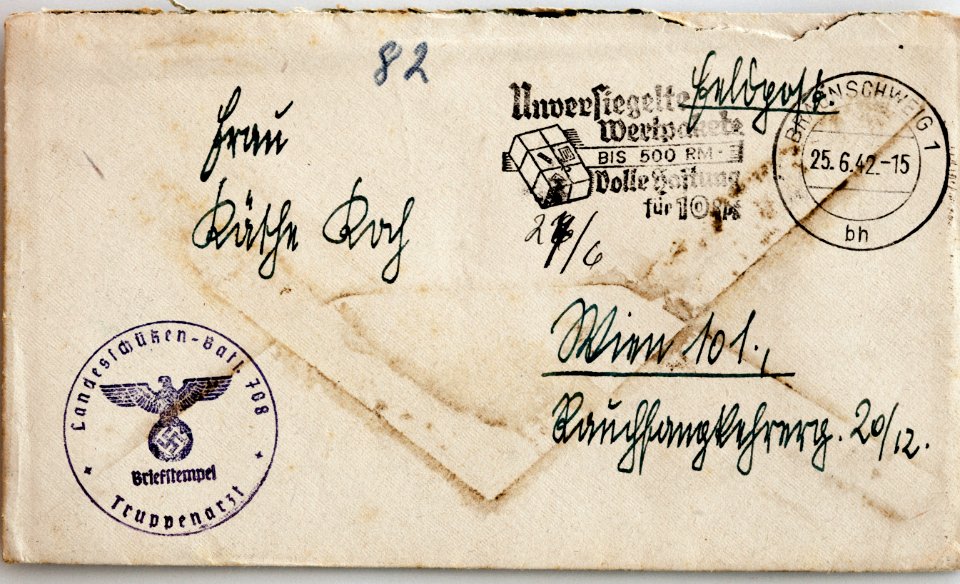 82
Feldpost.
Unversiegelte
Wertpakete
BIS 500 RM
Volle Haftung
für 10 Rpf
BRAUNSCHWEIG 1
25.6.42.-15
bh
Frau
Käthe Koch
/6
Wien 101.,
Rauchfangkehrerg. 20/12.
Landesschützen-Batl. 708
Briefstempel
Truppenarzt